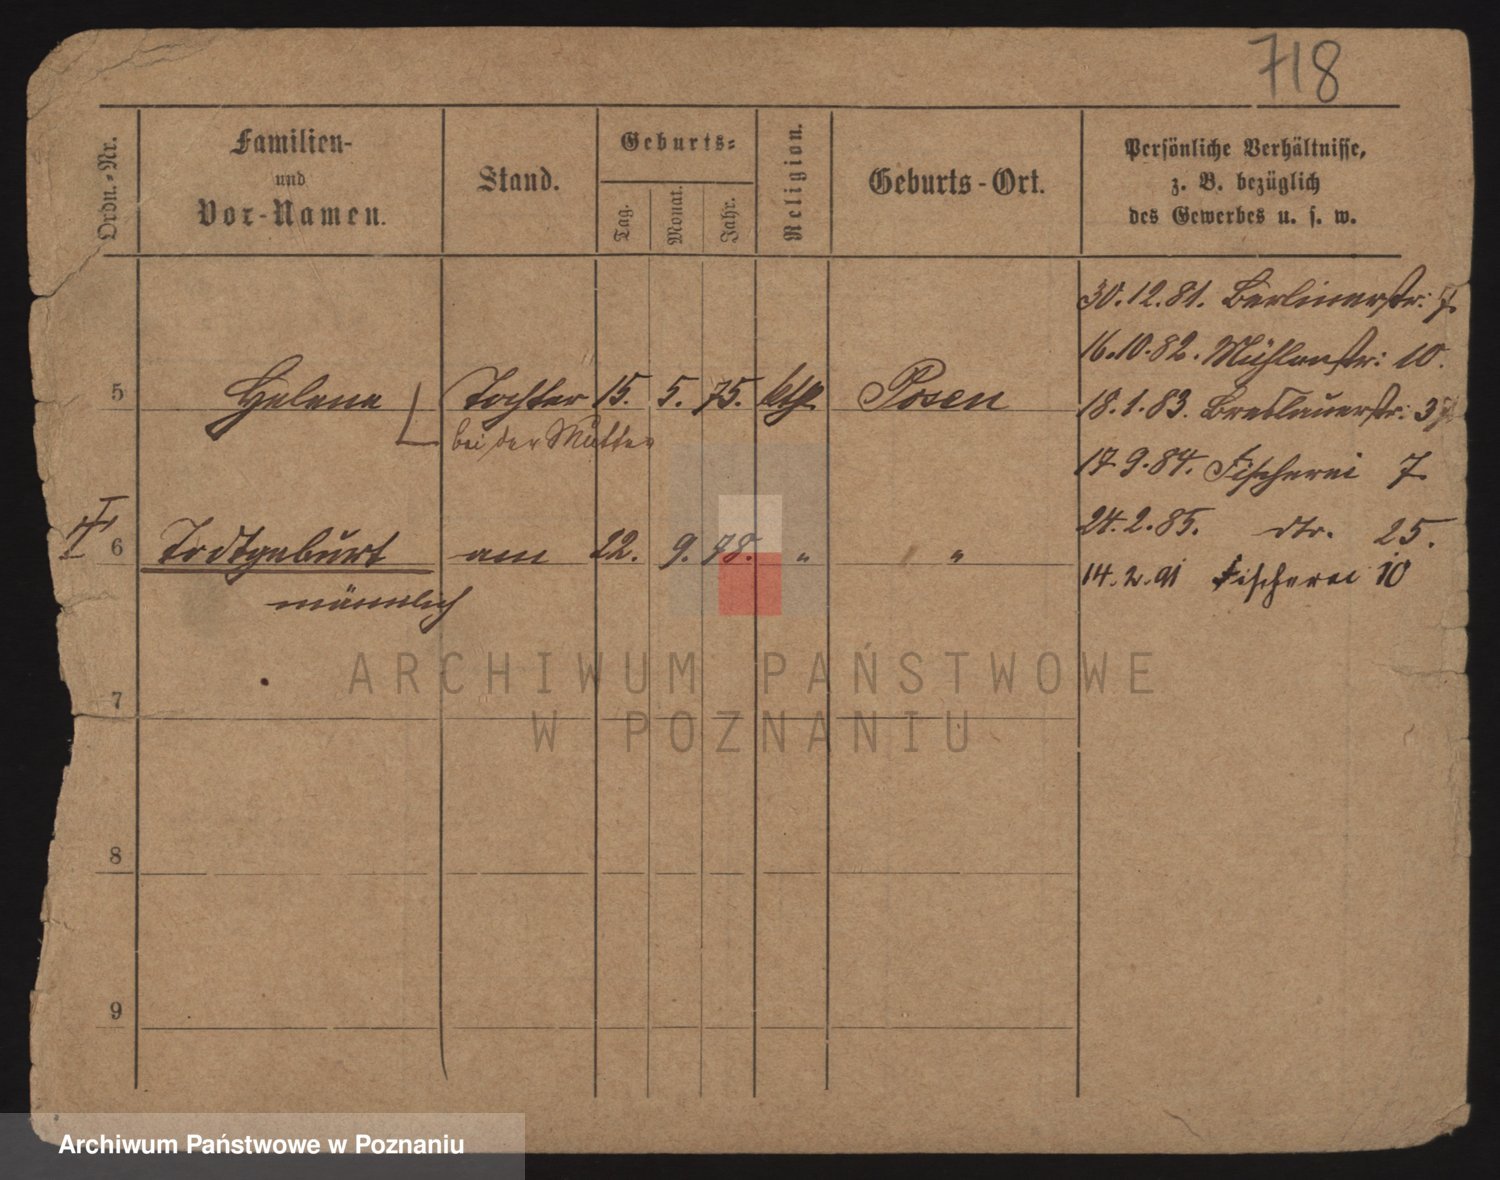 718
Ordn.-Nr.
Familien-
und
Vor-Namen.
Stand.
Geburts-
Tag.
Monat.
Jahr.
Religion.
Geburts-Ort.
Persönliche Verhältnisse,
z. B. bezüglich
des Gewerbes u. s. w.
30.12.81. Berlinerstr: 7.
16.10.82. Mühlenstr: 10.
5 Helene Tochter 15. 5. 75. kth Posen
18.1.83. Breslauerstr:
bei der Mutter
17.9.84. Fischerei 7.
24.2.85. dto. 25.
6 Todtgeburt am 22. 9. 78. " "
14.2.91 Fischerei 10
männlich
ARCHIWUM PAŃSTWOWE
W POZNANIU
7
8
9
Archiwum Państwowe w Poznaniu